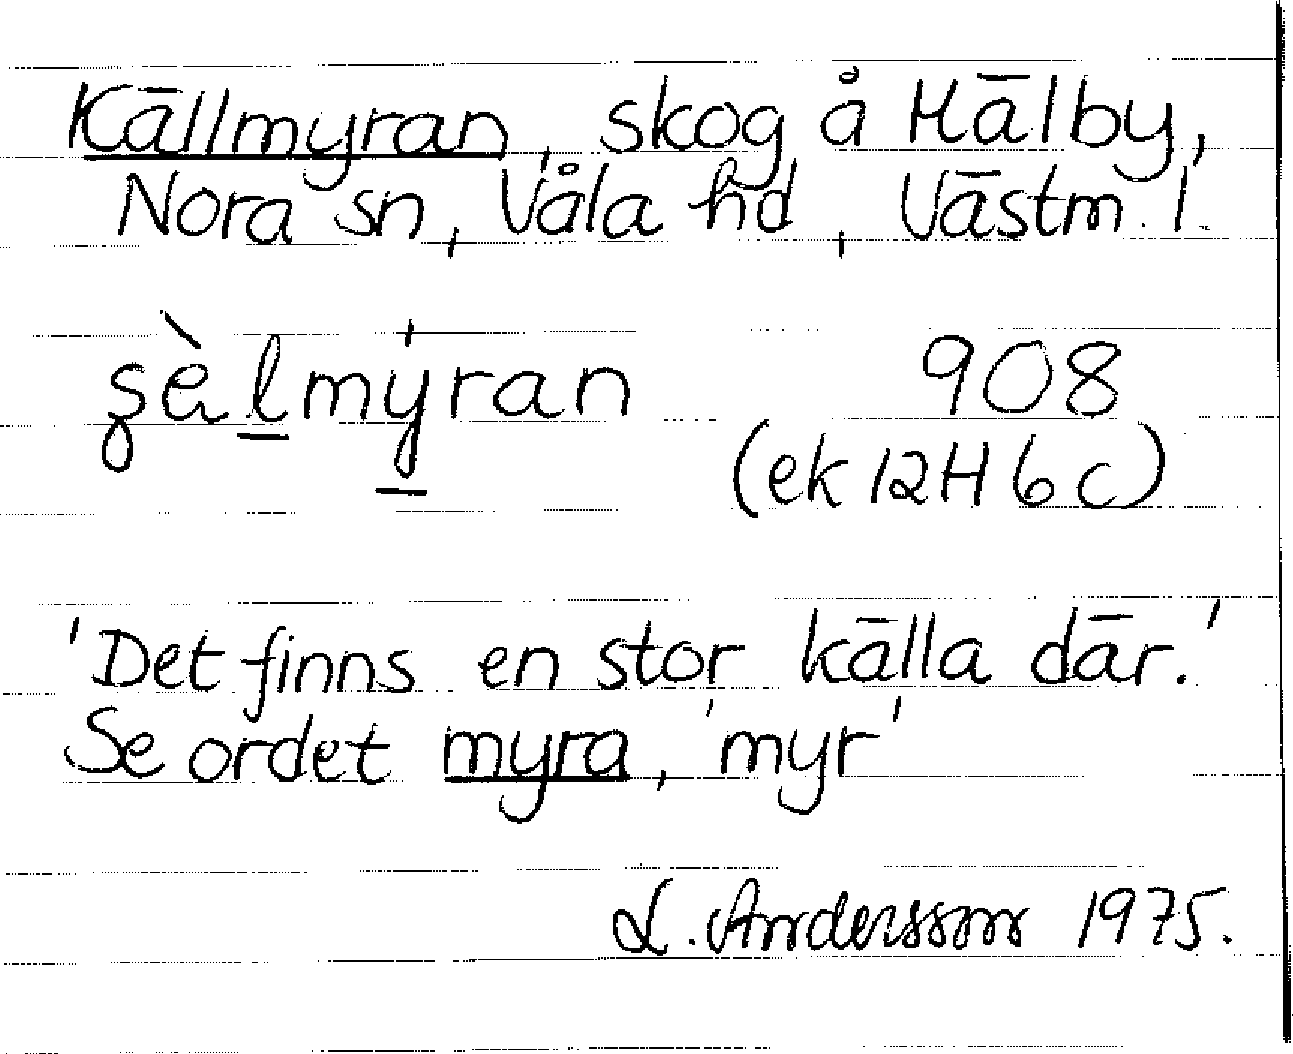 Källmyran, skog å Hälby,
Nora sn, Våla hd, Västm. l.
908
(ek 12H 6c)
'Det finns en stor källa där.'
Se ordet myra, 'myr'
L. Andersson 1975.